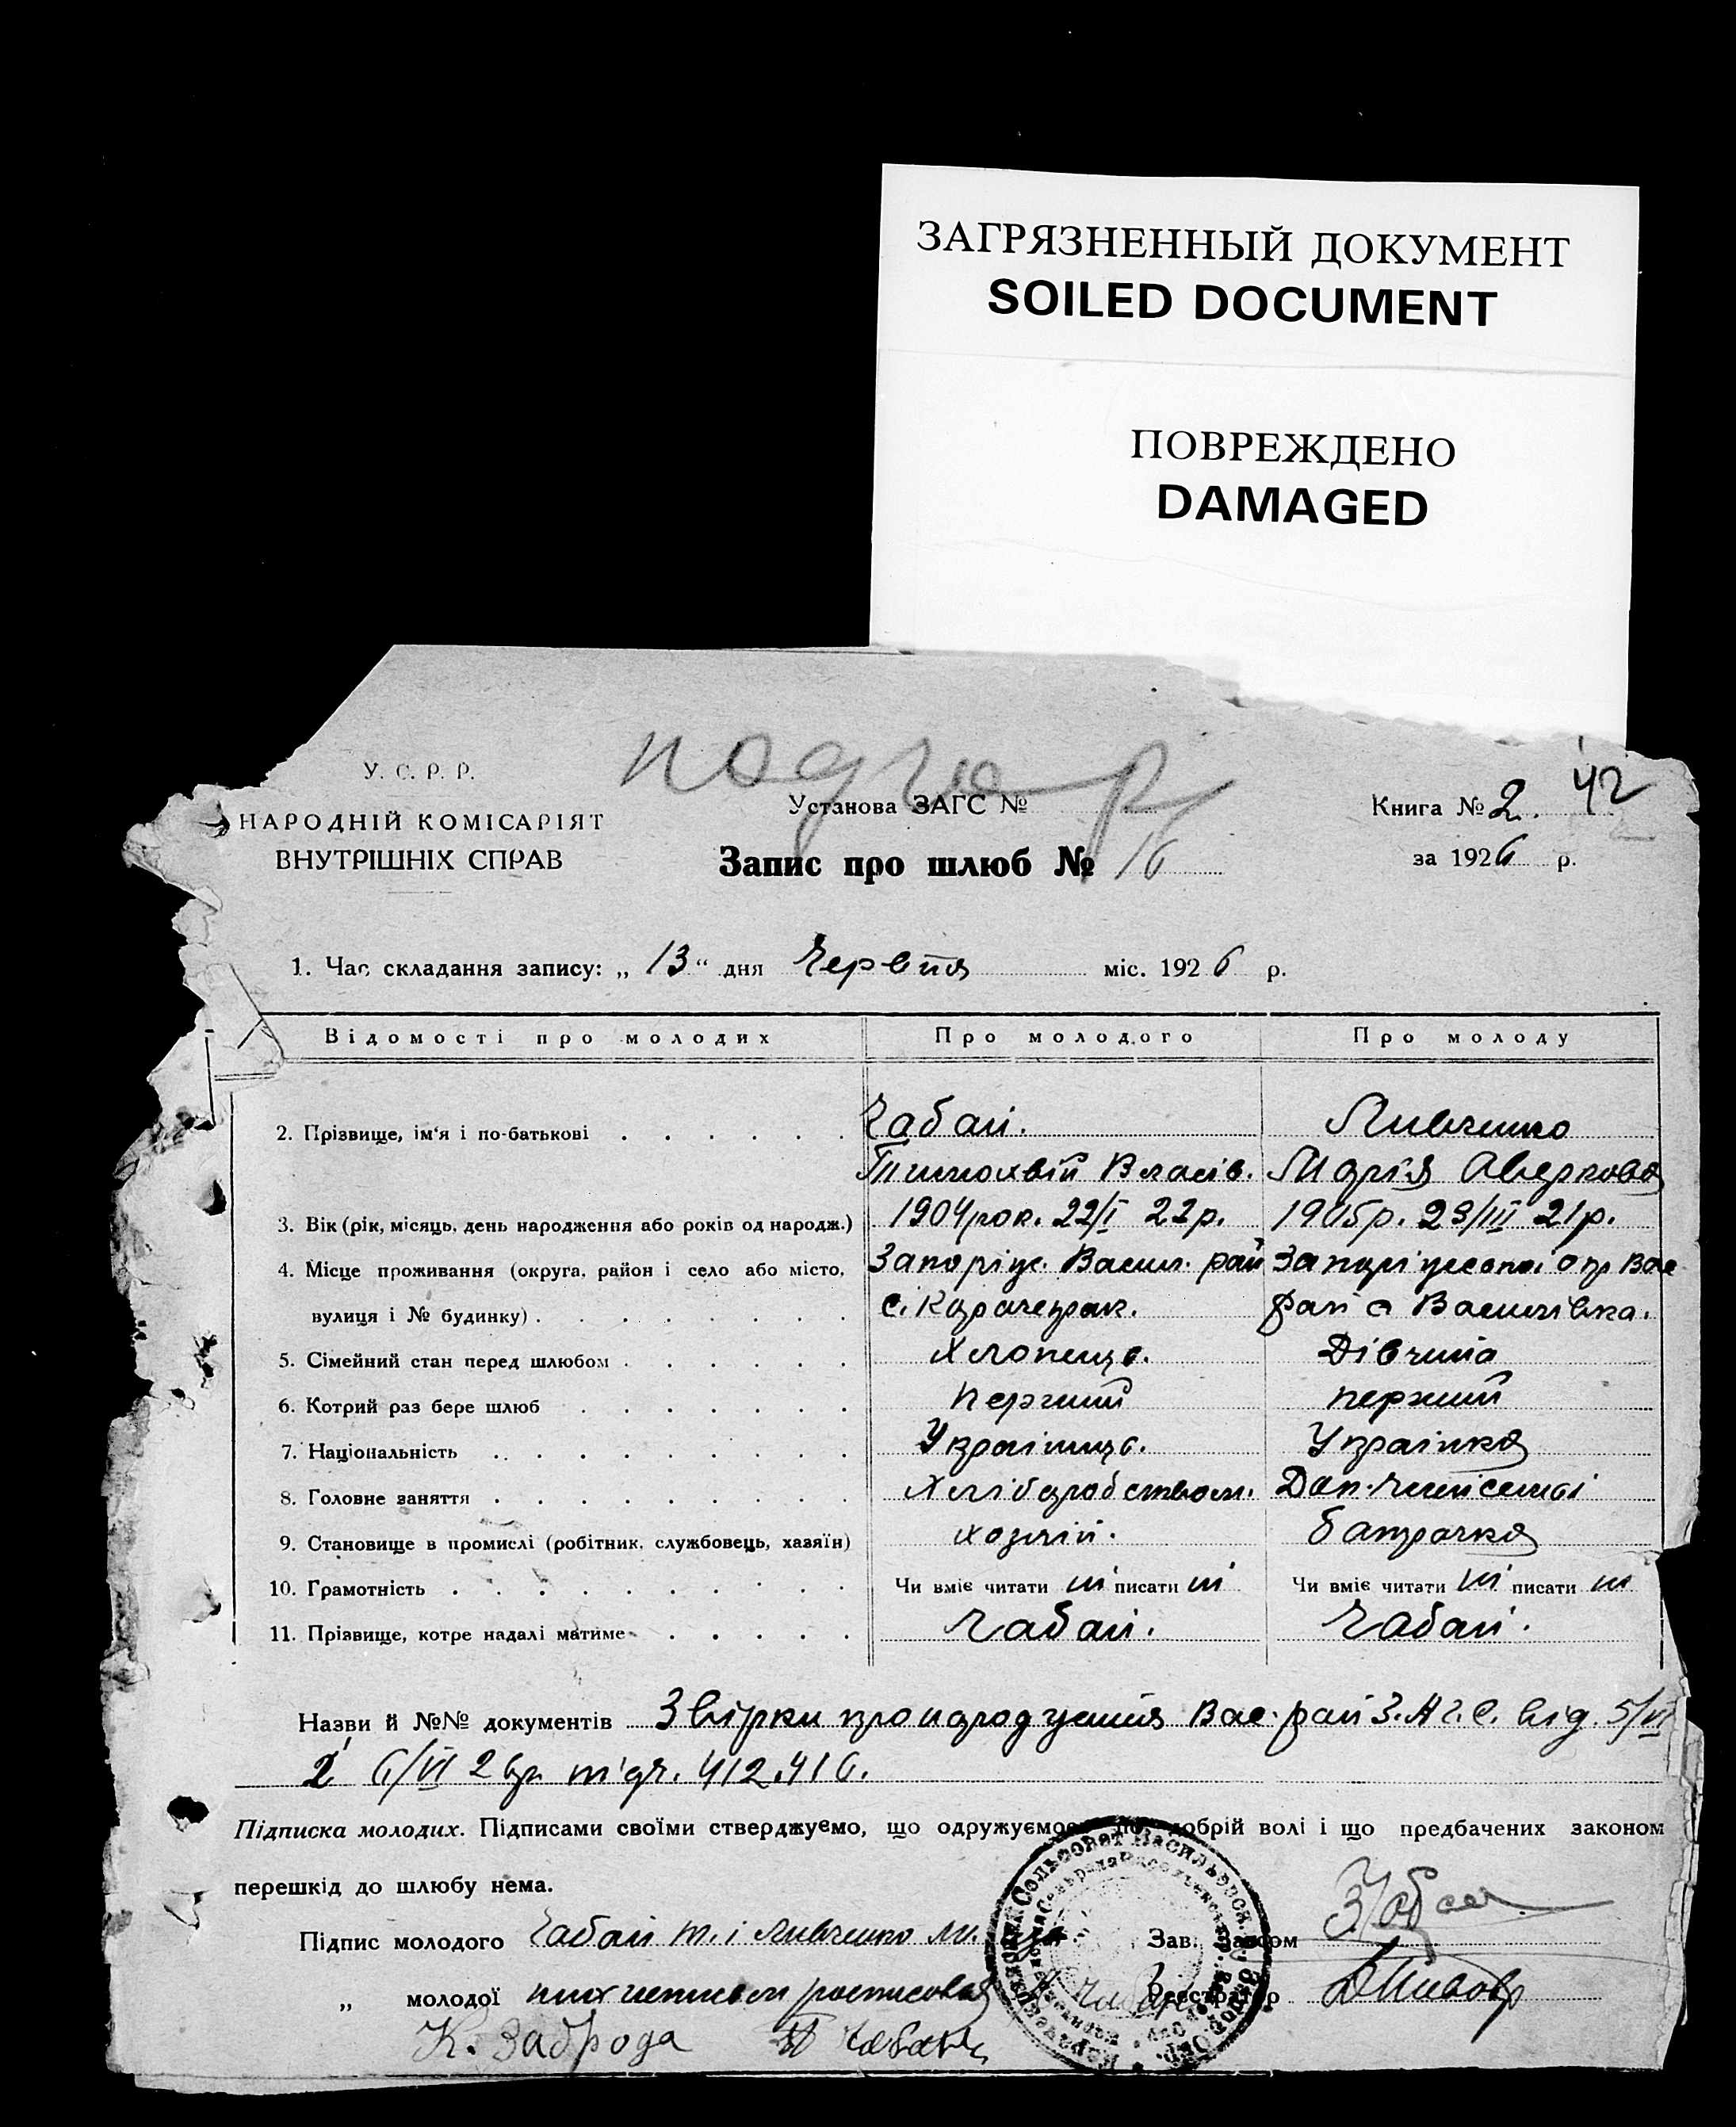 ЗАГРЯЗНЕННЫЙ ДОКУМЕНТ
SOILED DOCUMENT
ПОВРЕЖДЕНО
DAMAGED
У. С. Р. Р.
НАРОДНІЙ КОМІСАРІЯТ
ВНУТРІШНІХ СПРАВ
Установа ЗАГС №
Книга № 2. 42
за 1926 р.
Запис про шлюб № 16
1. Час складання запису: „ 13 “ дня Червня міс. 1926 р.
Відомості про молодих Про молодого Про молоду
2. Прізвище, ім'я і по-батькові Чабан. Ливченко
Тимохвій Власів. Марія Аверкова
3. Вік (рік, місяць, день народження або років од народж.) 1904 рок. 22/I 22 р. 1905 р. 23/III 21 р.
4. Місце проживання (округа, район і село або місто, Запоріж. Васил. рай Запоріжської окр Вас
вулиця і № будинку) с. Карачекрак. рай с Василівка.
5. Сімейний стан перед шлюбом Хлопець. Дівчина
6. Котрий раз бере шлюб первий первий
7. Національність Українець. Українка
8. Головне заняття Хліборобством. Доп.
9. Становище в промислі (робітник, службовець, хазяїн) хозяїн. батрачка
10. Грамотність Чи вміє читати ні писати ні Чи вміє читати ні писати ні
11. Прізвище, котре надалі матиме Чабан. Чабан.
Назви й №№ документів Звірки про народження Вас. рай З.А.Г.С. від. 5/VI
й 6/VI 26 р. 412.416.
Підписка молодих. Підписами своїми стверджуємо, що одружуємось по добрій волі і що предбачених законом
перешкід до шлюбу нема.
Підпис молодого Чабан Т. і Ливченко М. Зав. Загсом
„ молодої Реєстратор
К. Заброда Чабан